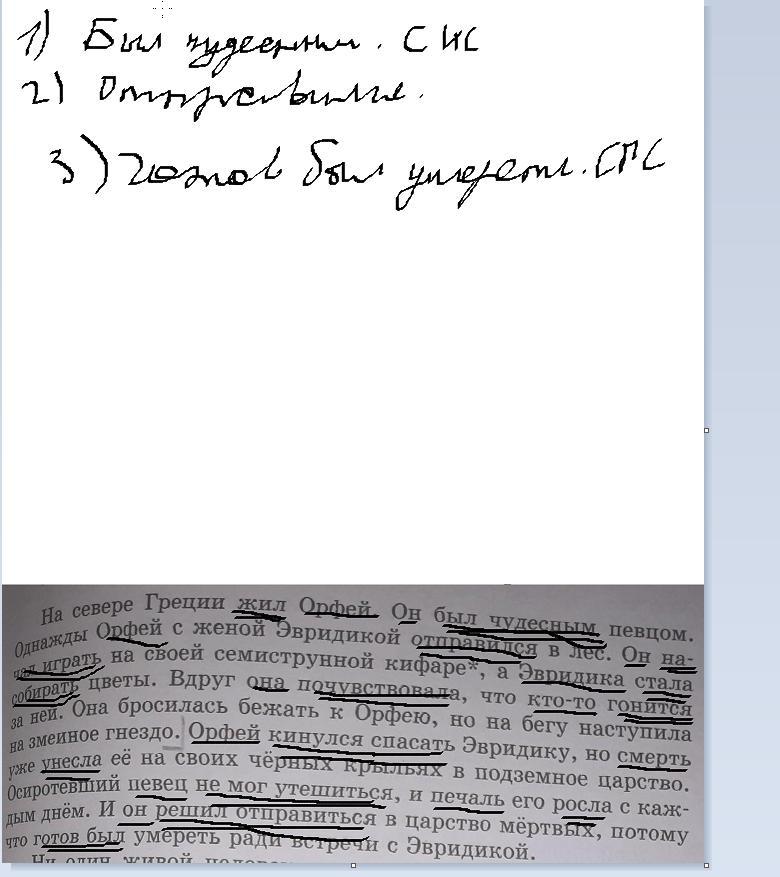 1) Был чудесным. СИС
2) Отправился.
3) Готов был умереть. СГС
На севере Греции жил Орфей. Он был чудесным певцом.
Однажды Орфей с женой Эвридикой отправился в лес. Он на-
чал играть на своей семиструнной кифаре*, а Эвридика стала
собирать цветы. Вдруг она почувствовала, что кто-то гонится
за ней. Она бросилась бежать к Орфею, но на бегу наступила
на змеиное гнездо. Орфей кинулся спасать Эвридику, но смерть
уже унесла её на своих чёрных крыльях в подземное царство.
Осиротевший певец не мог утешиться, и печаль его росла с каж-
дым днём. И он решил отправиться в царство мёртвых, потому
что готов был умереть ради встречи с Эвридикой.
Ни один живой